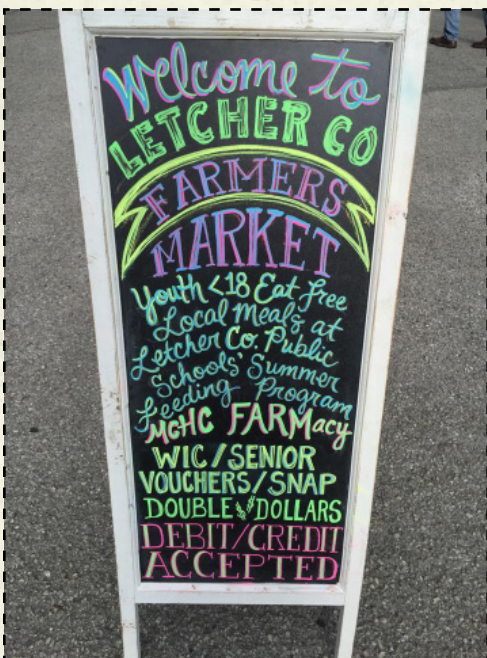 Welcome to
LETCHER CO
FARMERS
MARKET
Youth <18 Eat free
Local Meals at
Letcher Co. Public
Schools' Summer
Feeding Program
MCHC FARMacy
WIC/SENIOR
VOUCHERS/SNAP
DOUBLE $ DOLLARS
DEBIT/CREDIT
ACCEPTED